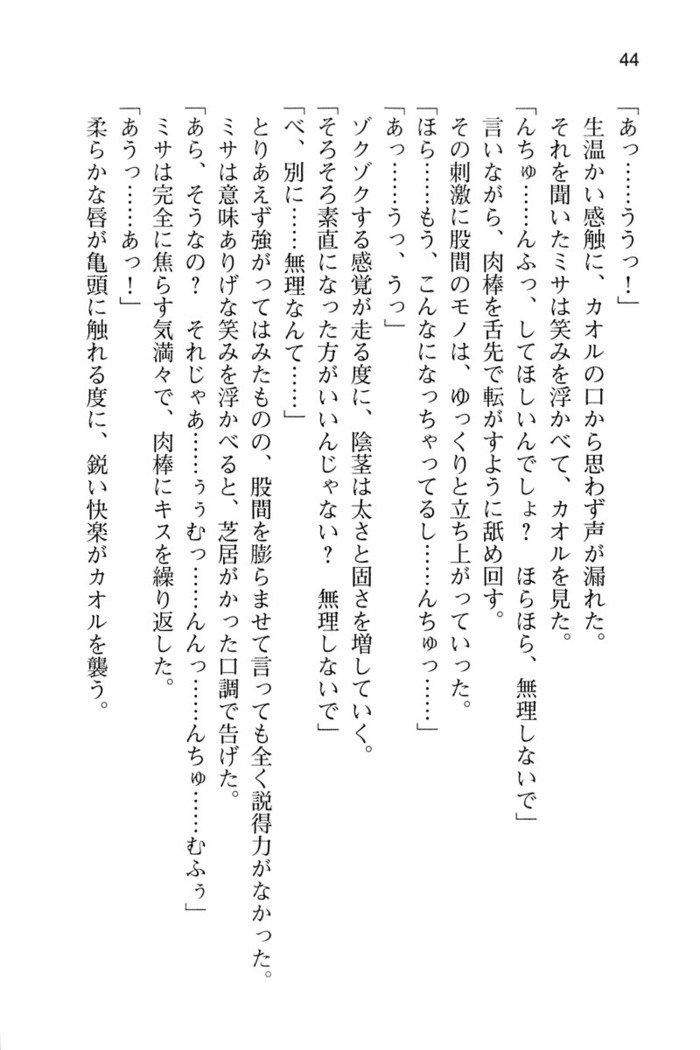 44
「あっ……ううっ！」
生温かい感触に、カオルの口から思わず声が漏れた。
それを聞いたミサは笑みを浮かべて、カオルを見た。
「んちゅ……んふっ、してほしいんでしょ？　ほらほら、無理しないで」
言いながら、肉棒を舌先で転がすように舐め回す。
その刺激に股間のモノは、ゆっくりと立ち上がっていった。
「ほら……もう、こんなになっちゃってるし……んちゅっ……」
「あっ……うっ、うっ」
ゾクゾクする感覚が走る度に、陰茎は太さと固さを増していく。
「そろそろ素直になった方がいいんじゃない？　無理しないで」
「べ、別に……無理なんて……」
とりあえず強がってはみたものの、股間を膨らませて言っても全く説得力がなかった。
ミサは意味ありげな笑みを浮かべると、芝居がかった口調で告げた。
「あら、そうなの？　それじゃあ……ぅぅむっ……んんっ……んちゅ……むふぅ」
ミサは完全に焦らす気満々で、肉棒にキスを繰り返した。
「あうっ……あっ！」
柔らかな唇が亀頭に触れる度に、鋭い快楽がカオルを襲う。